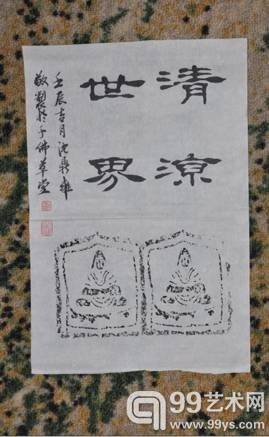 清涼
世界
壬辰吉月沈鼎雍
敬製於千佛草堂
99艺术网
www.99ys.com